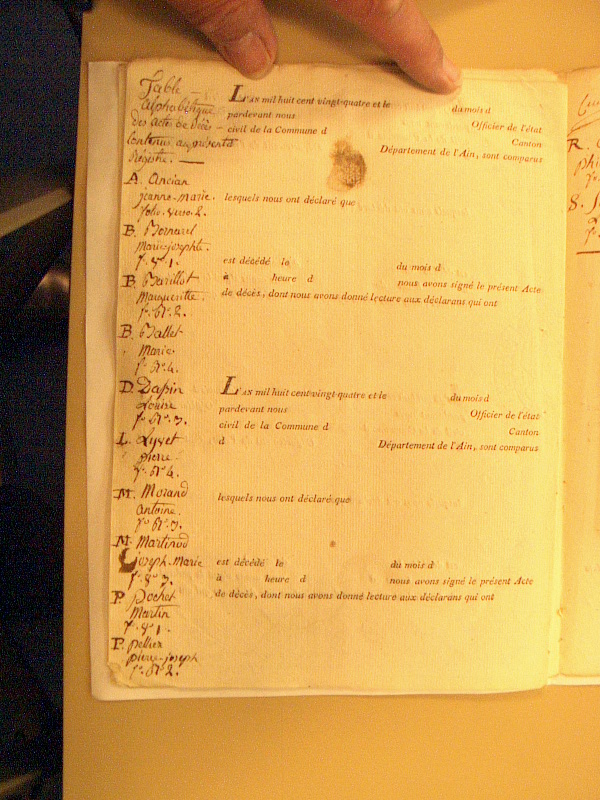 Table
alphabétique
des actes de décès
contenus au présent
Régistre.
A. Ancian
jeanne-marie.
folio. verso. 2.
B. Bornarel
marie-josephte.
f.º 1.
B. Barillot
Marguerite.
f.º 2.
B. Ballet
Marie.
f.º 4.
D. Dapin
Louise
f.º 3.
L. Lyvet
pierre
f.º 4.
M. Morand
antoine.
f.º 3.
M. Martinod
joseph-Marie
f.º 3.
P. Pochet
Martin
f.º 1.
P. pellier
pierre-joseph
f.º 2.
L'AN mil huit cent vingt-quatre et le du mois d
pardevant nous Officier de l'état
civil de la Commune d Canton
Département de l'Ain, sont comparus
lesquels nous ont déclaré que
est décédé le du mois d
à heure d nous avons signé le présent Acte
de décès, dont nous avons donné lecture aux déclarans qui ont
L'AN mil huit cent vingt-quatre et le du mois d
pardevant nous Officier de l'état
civil de la Commune d Canton
d Département de l'Ain, sont comparus
lesquels nous ont déclaré que
est décédé le du mois d
à heure d nous avons signé le présent Acte
de décès, dont nous avons donné lecture aux déclarans qui ont
R.
phi
S.